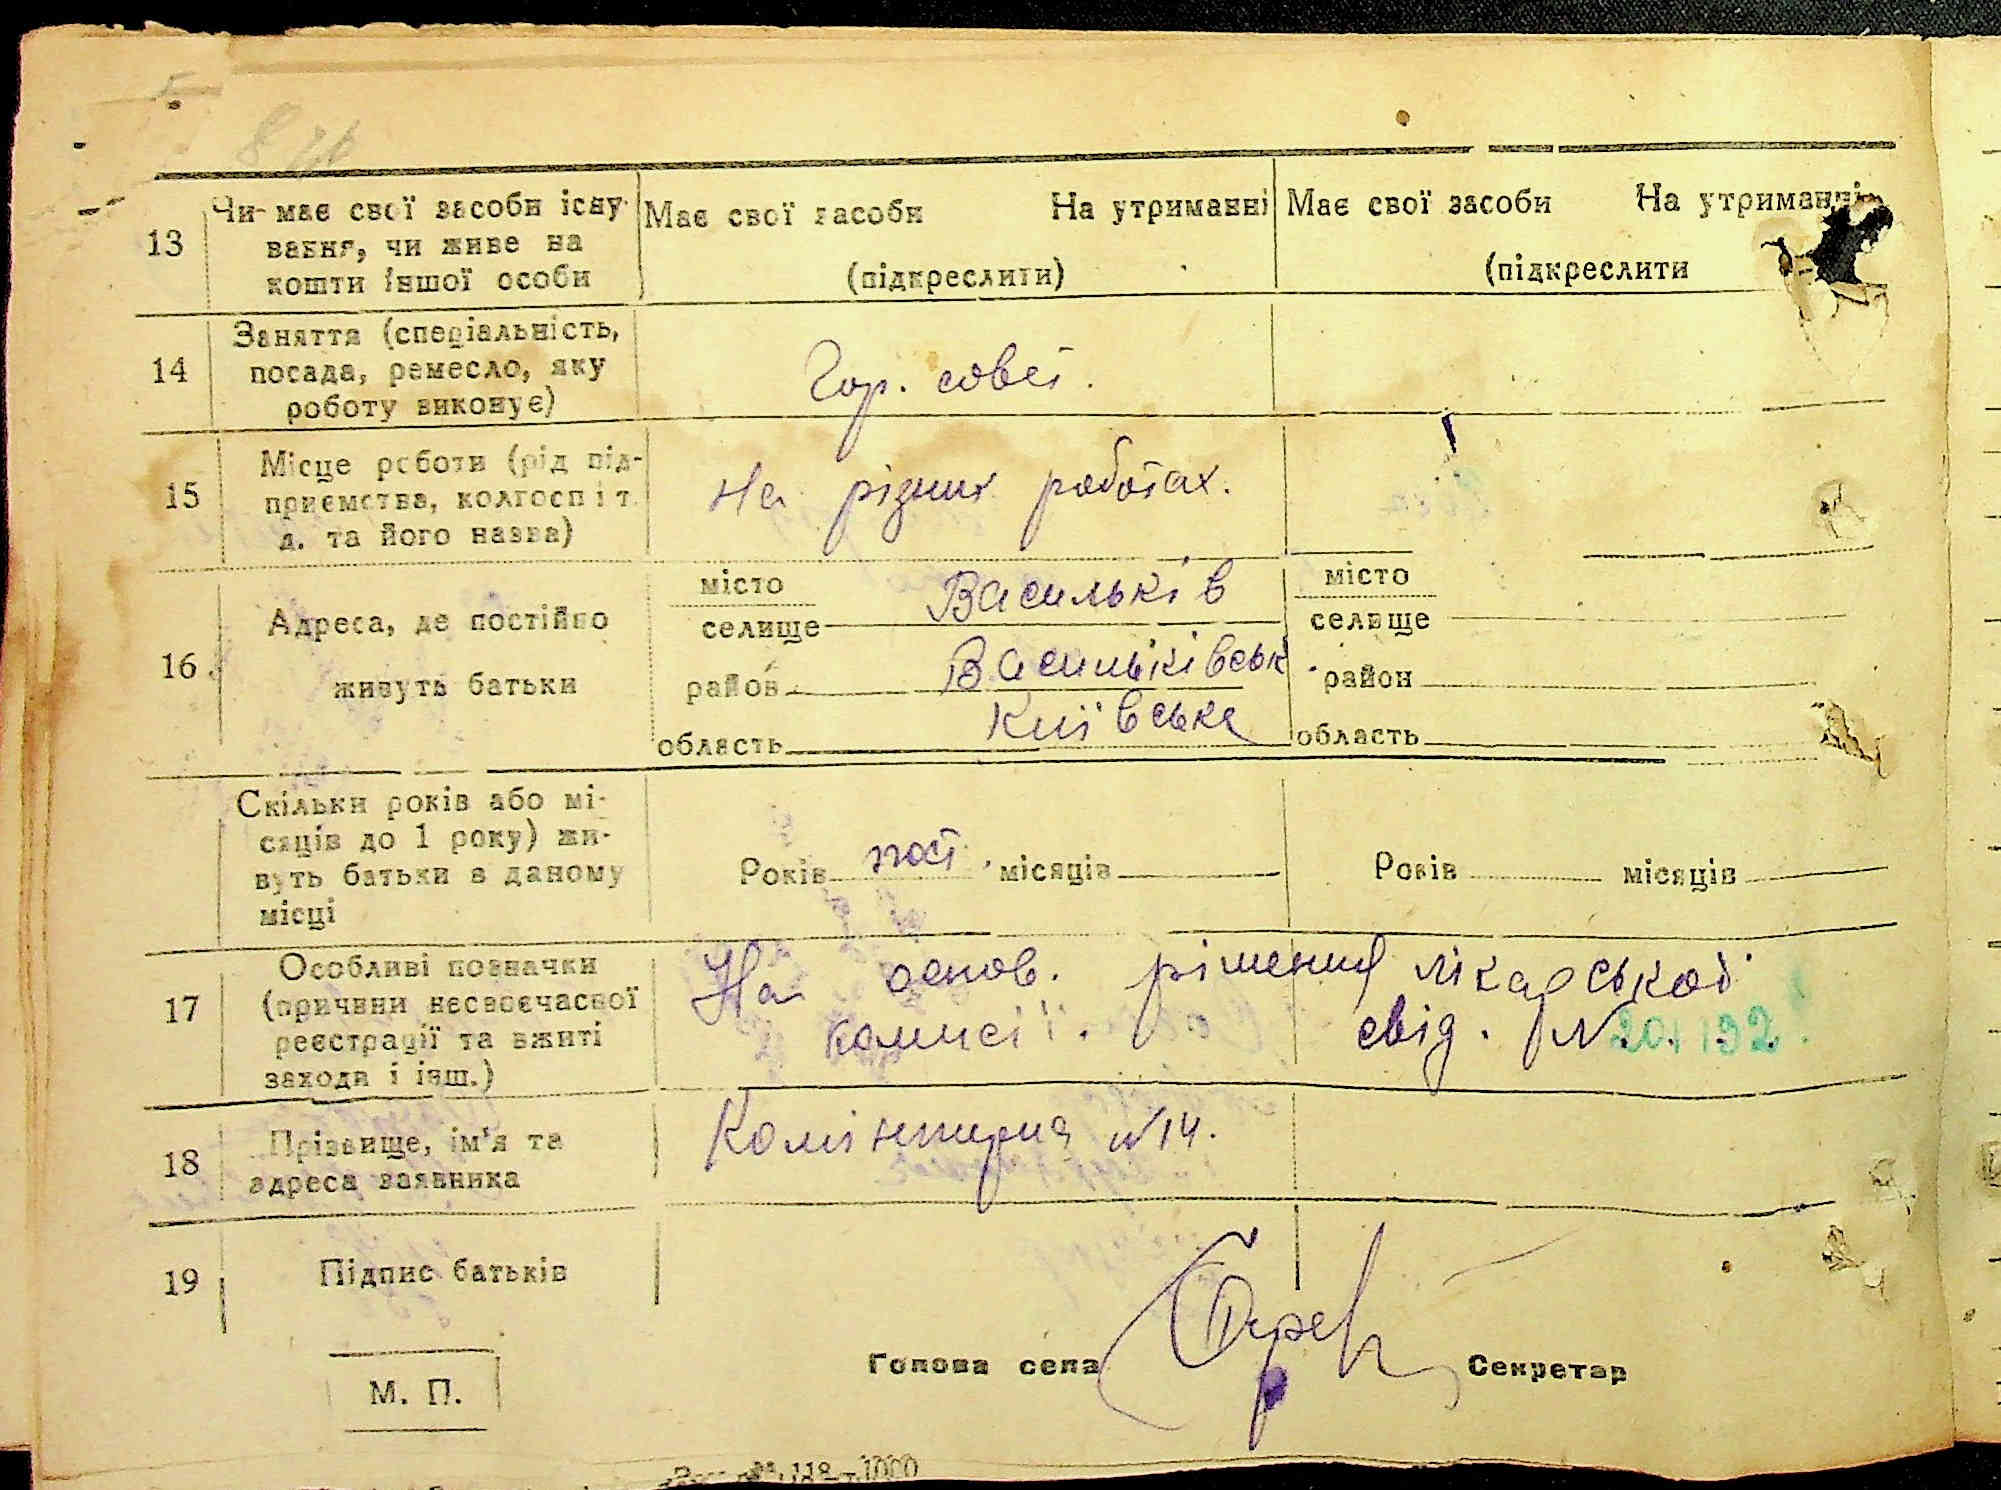 13
Чи має свої засоби існу-
вання, чи живе на
кошти іншої особи
Має свої засоби На утриманні
(підкреслити)
Має свої засоби На утриманні
(підкреслити
14
Заняття (спеціальність,
посада, ремесло, яку
роботу виконує)
Гор. совет.
15
Місце роботи (рід під-
приємства, колгосп і т.
д. та його назва)
На різних роботах.
16
Адреса, де постійно
живуть батьки
місто
селище Васильків
район Васильківськ
область Київська
місто
селище
район
область
Скільки років або мі-
сяців до 1 року) жи-
вуть батьки в даному
місці
Років пост. місяців
Років місяців
17
Особливі позначки
(причини несвоєчасної
реєстрації та вжиті
заходи і інш.)
На основ. рішення лікарської
комисії. свід. №
18
Прізвище, ім'я та
адреса заявника
№ 14.
19
Підпис батьків
М. П.
Голова села Секретар